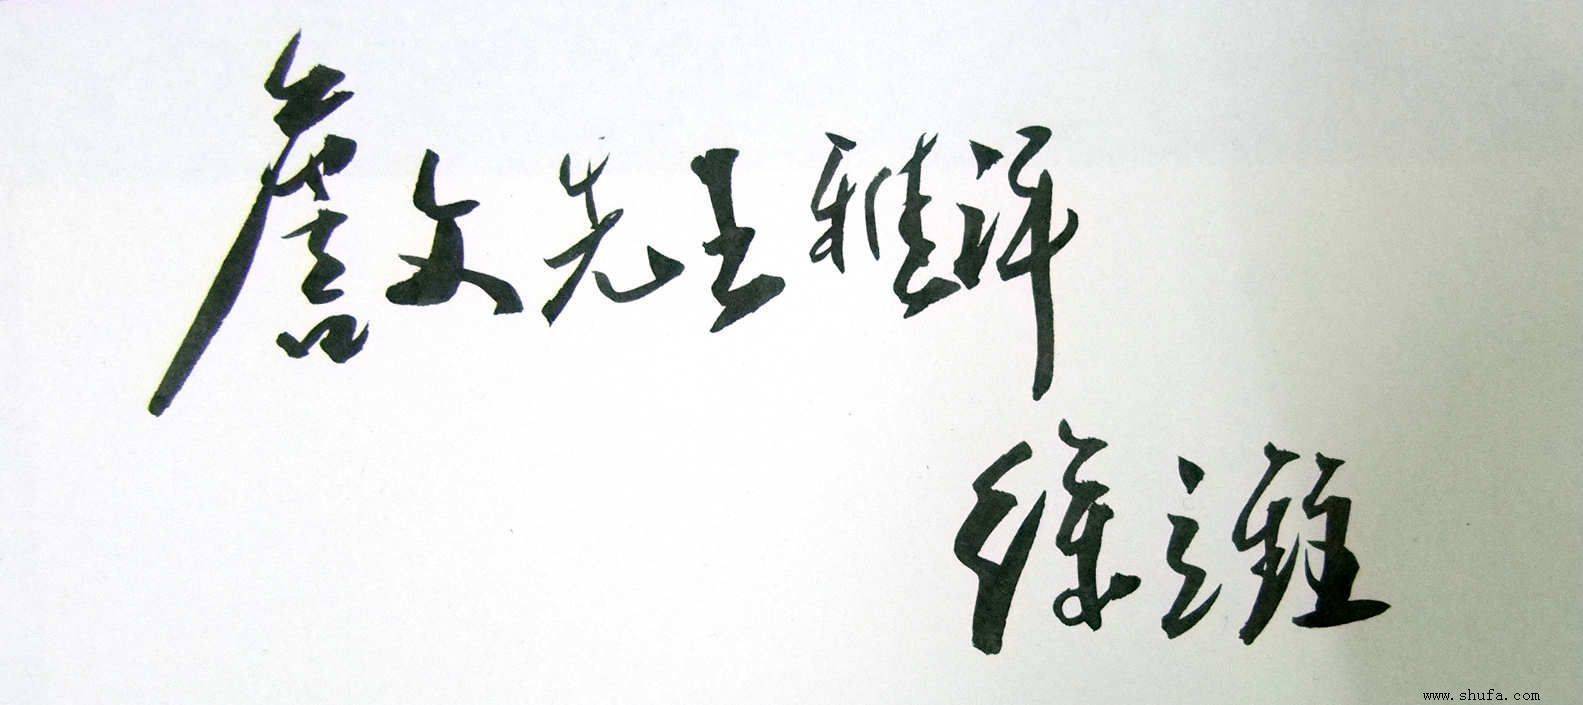 詹文先生雅評
徐立雄
www.shufa.com